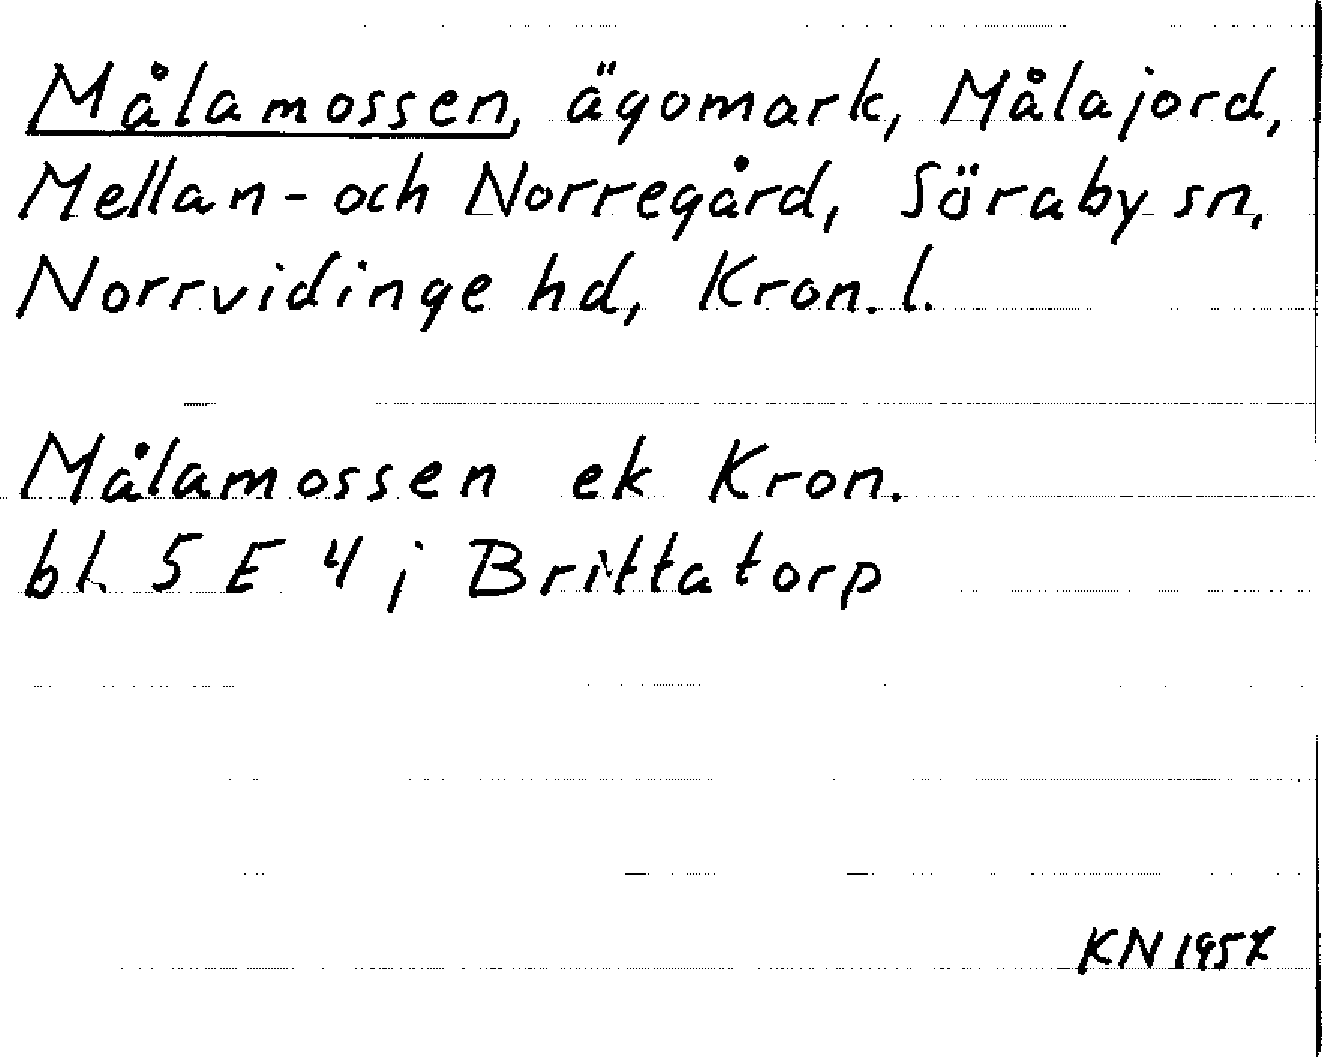 Målamossen, ägomark, Målajord,
Mellan- och Norregård, Söraby sn,
Norrvidinge hd, Kron. l.
Målamossen ek Kron.
bl. 5 E 4 j Brittatorp
KN 1957